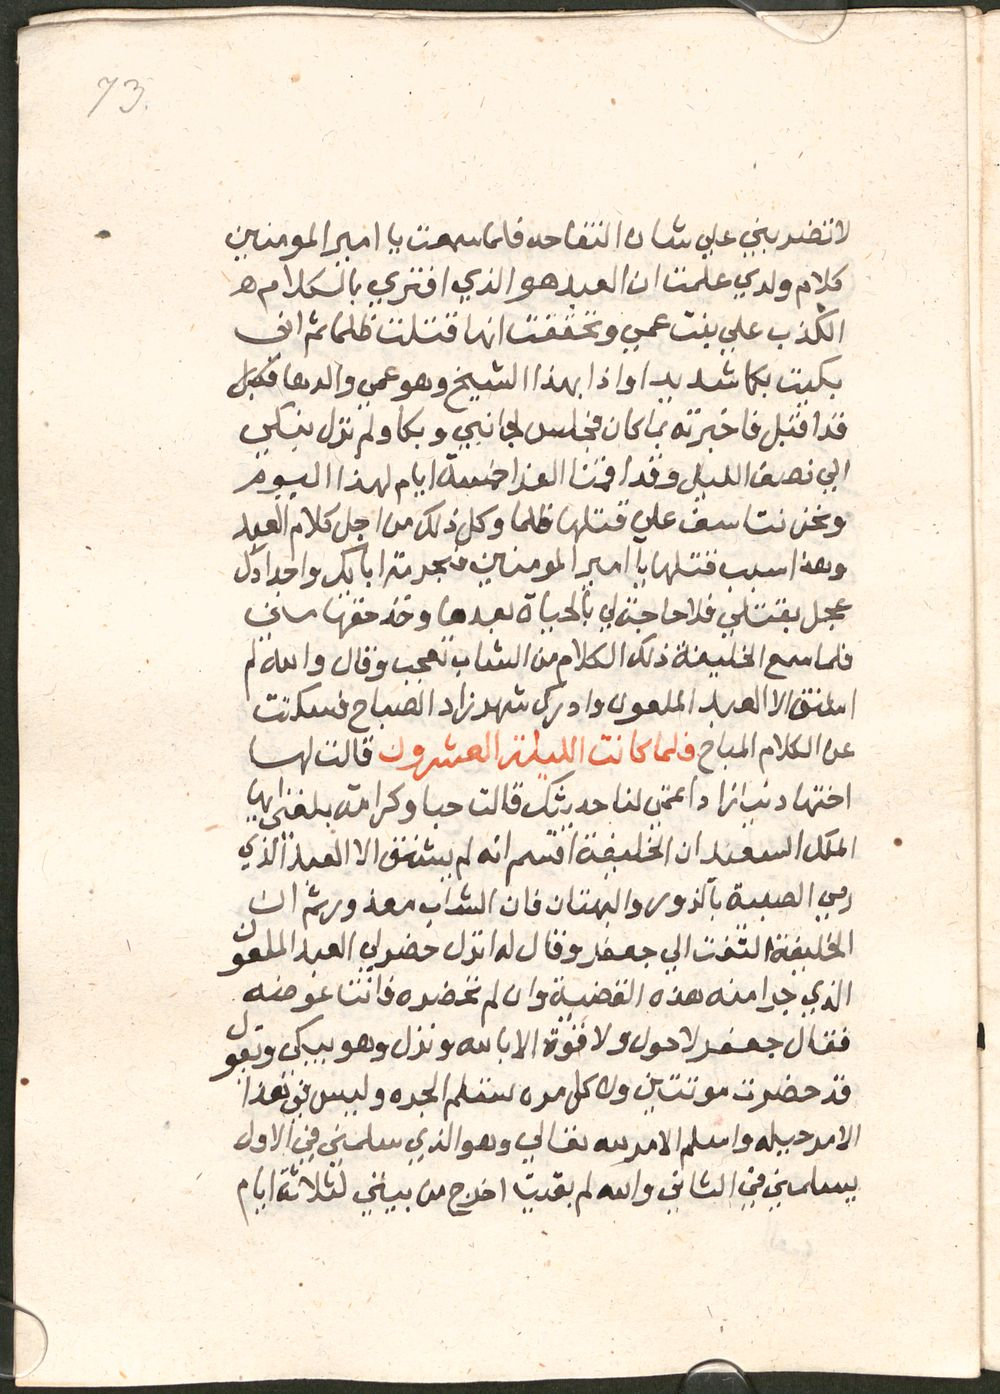 73
لا تضربيني علي شان التفاحه فلما سمعت يا امير المومنين
كلام ولدي علمت ان العبد هو الذي افتري بالكلام
الكذب علي بنت عمي وتحققت انها قتلت ظلما ثم اني
بكيت بكا شديدا واذا بهذا الشيخ وهو عمي والدها
قد اقبل فاخبرته بما كان فجلس بجانبي وبكا ولم نزل نبكي
الي نصف الليل وقد اقمنا العزا خمسة ايام لهذا اليوم
ونحن نتاسف علي قتلها ظلما وكل ذلك من اجل كلام العبد
وهذا سبب قتلها يا امير المومنين فبحرمة ابايك واجدادك
عجل بقتلي فلا حاجة لي بالحياة بعدها وخذ حقها مني
فلما سمع الخليفة ذلك الكلام من الشاب تعجب وقال والله لم
اشنق الا العبد الملعون وادرك شهرزاد الصباح فسكتت
عن الكلام المباح فلما كانت الليلة العشرون قالت لها
اختها دنيازاد اتمي لنا حديثك قالت حبا وكرامة بلغني ايها
الملك السعيد ان الخليفة اقسم انه لم يشنق الا العبد الذي
رمي الصبية بالزور والبهتان فان الشاب معذور ثم ان
الخليفة التفت الي جعفر وقال له انزل حضر لي العبد الملعون
الذي جرا منه هذه القضية وان لم تحضره فانت عوضه
فقال جعفر لا حول ولا قوة الا بالله ونزل وهو يبكي ويقول
قد حضرت موتتين ولا كل مره تسلم الجره وليس في هذا
الامر حيله واسلم الامر لله تعالي وهو الذي سلمني في الاول
يسلمني في الثاني والله لم بقيت اخرج من بيتي لثلاثة ايام